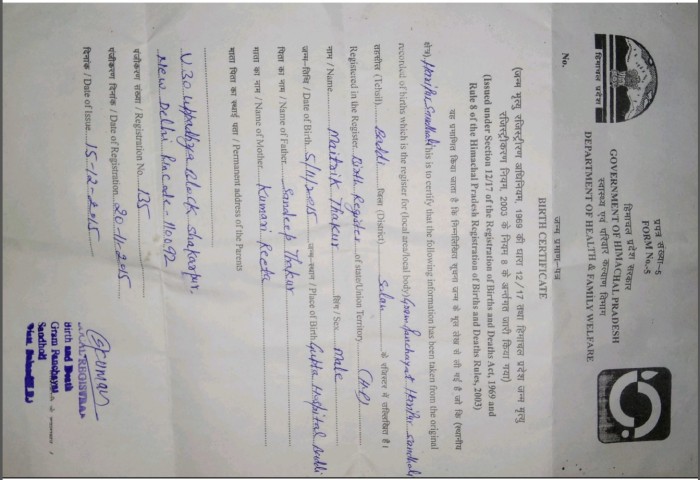 प्रपत्र संख्या-5
FORM No.-5
हिमाचल प्रदेश सरकार
GOVERNMENT OF HIMACHAL PRADESH
स्वास्थ्य एवं परिवार कल्याण विभाग
DEPARTMENT OF HEALTH & FAMILY WELFARE
हिमाचल प्रदेश
No.
जन्म प्रमाण-पत्र
BIRTH CERTIFICATE
(जन्म मृत्यु रजिस्ट्रीकरण अधिनियम, 1969 की धारा 12/17 तथा हिमाचल प्रदेश जन्म मृत्यु
रजिस्ट्रीकरण नियम, 2003 के नियम 8 के अर्न्तगत जारी किया गया)
(Issued under Section 12/17 of the Registration of Births and Deaths Act, 1969 and
Rule 8 of the Himachal Pradesh Registration of Births and Deaths Rules, 2003)
यह प्रमाणित किया जाता है कि निम्नलिखित सूचना जन्म के मूल लेख से ली गई है जो कि (स्थानीय
क्षेत्र) Haripur Sandholi This is to certify that the following information has been taken from the original
record of births which is the register for (local area/local body) Gram Panchayat Haripur Sandholi
तहसील (Tehsil) Baddi जिला (District) Solan के रजिस्टर में उल्लिखित है।
Registered in the Register Birth Register of state/Union Territory (HP)
नाम / Name Maitrik Thakur लिंग / Sex Male
जन्म-तिथि / Date of Birth 5/11/2015 जन्म-स्थान / Place of Birth Gupta Hospital Baddi
पिता का नाम / Name of Father Sandeep Thakur
माता का नाम / Name of Mother Kumari Reeta
माता पिता का स्थाई पता / Permanent address of the Parents
U 30 Uppadhya Block Shakarpur.
New Delhi Pincode-110092
पंजीकरण संख्या / Registration No. 135
पंजीकरण दिनांक / Date of Registration 20-11-2015
दिनांक / Date of Issue 15-12-2015
Birth and Death
Gram Panchayat
Sandholi